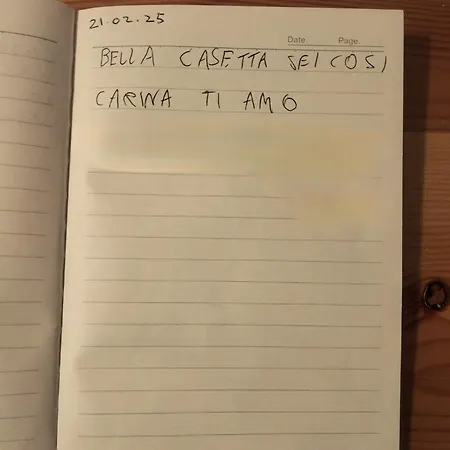 21.02.25
Date. Page.
BELLA CASETTA SEI COSI
CARINA TI AMO